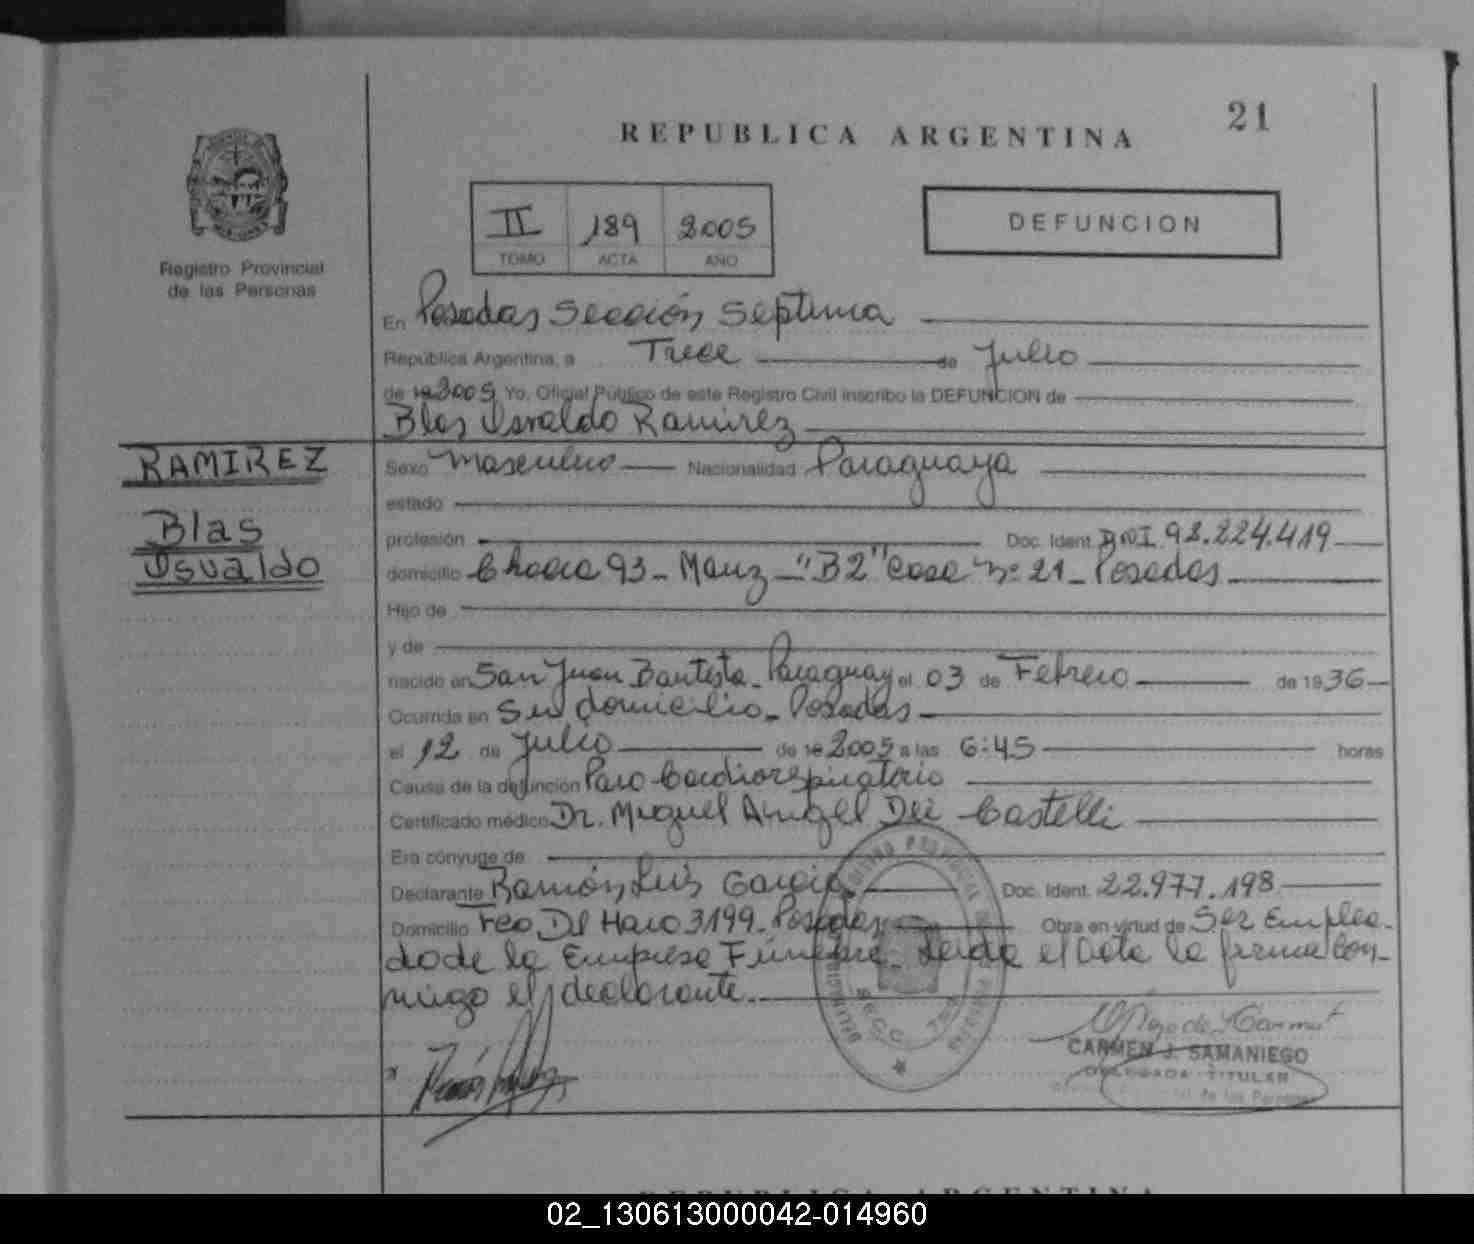 21
REPUBLICA ARGENTINA
II 189 2005
TOMO ACTA AÑO
DEFUNCION
Registro Provincial
de las Personas
En Posadas Sección Septima
República Argentina, a Trece de Julio
de 19 2005, Yo, Oficial Público de este Registro Civil inscribo la DEFUNCION de
Blas Osvaldo Ramirez
RAMIREZ
Blas
Osvaldo
Sexo Masculino Nacionalidad Paraguaya
estado
profesión Doc. Ident. DNI. 92.224.419
domicilio Chacra 93 - Manz - "B2" Casa Nº 21 - Posadas
Hijo de
y de
nacido en San Juan Bautista - Paraguay el 03 de Febrero de 1936
Ocurrida en Su domicilio - Posadas
el 12 de Julio de 19 2005 a las 6:45 horas
Causa de la defunción Paro Cardiorespiratorio
Certificado médico Dr. Miguel Angel Dei Castelli
Era cónyuge de
Declarante Ramón Luis Garcia Doc. Ident. 22.977.198
Domicilio Fco Del Haro 3199 - Posadas Obra en virtud de Ser Emplea-
do de la Empresa Fúnebre - Leida el Acta la firma Con-
migo el declarante.
SECC
CARMEN J. SAMANIEGO
DELEGADA TITULAR
de las Personas
REPUBLICA ARGENTINA
02_130613000042-014960